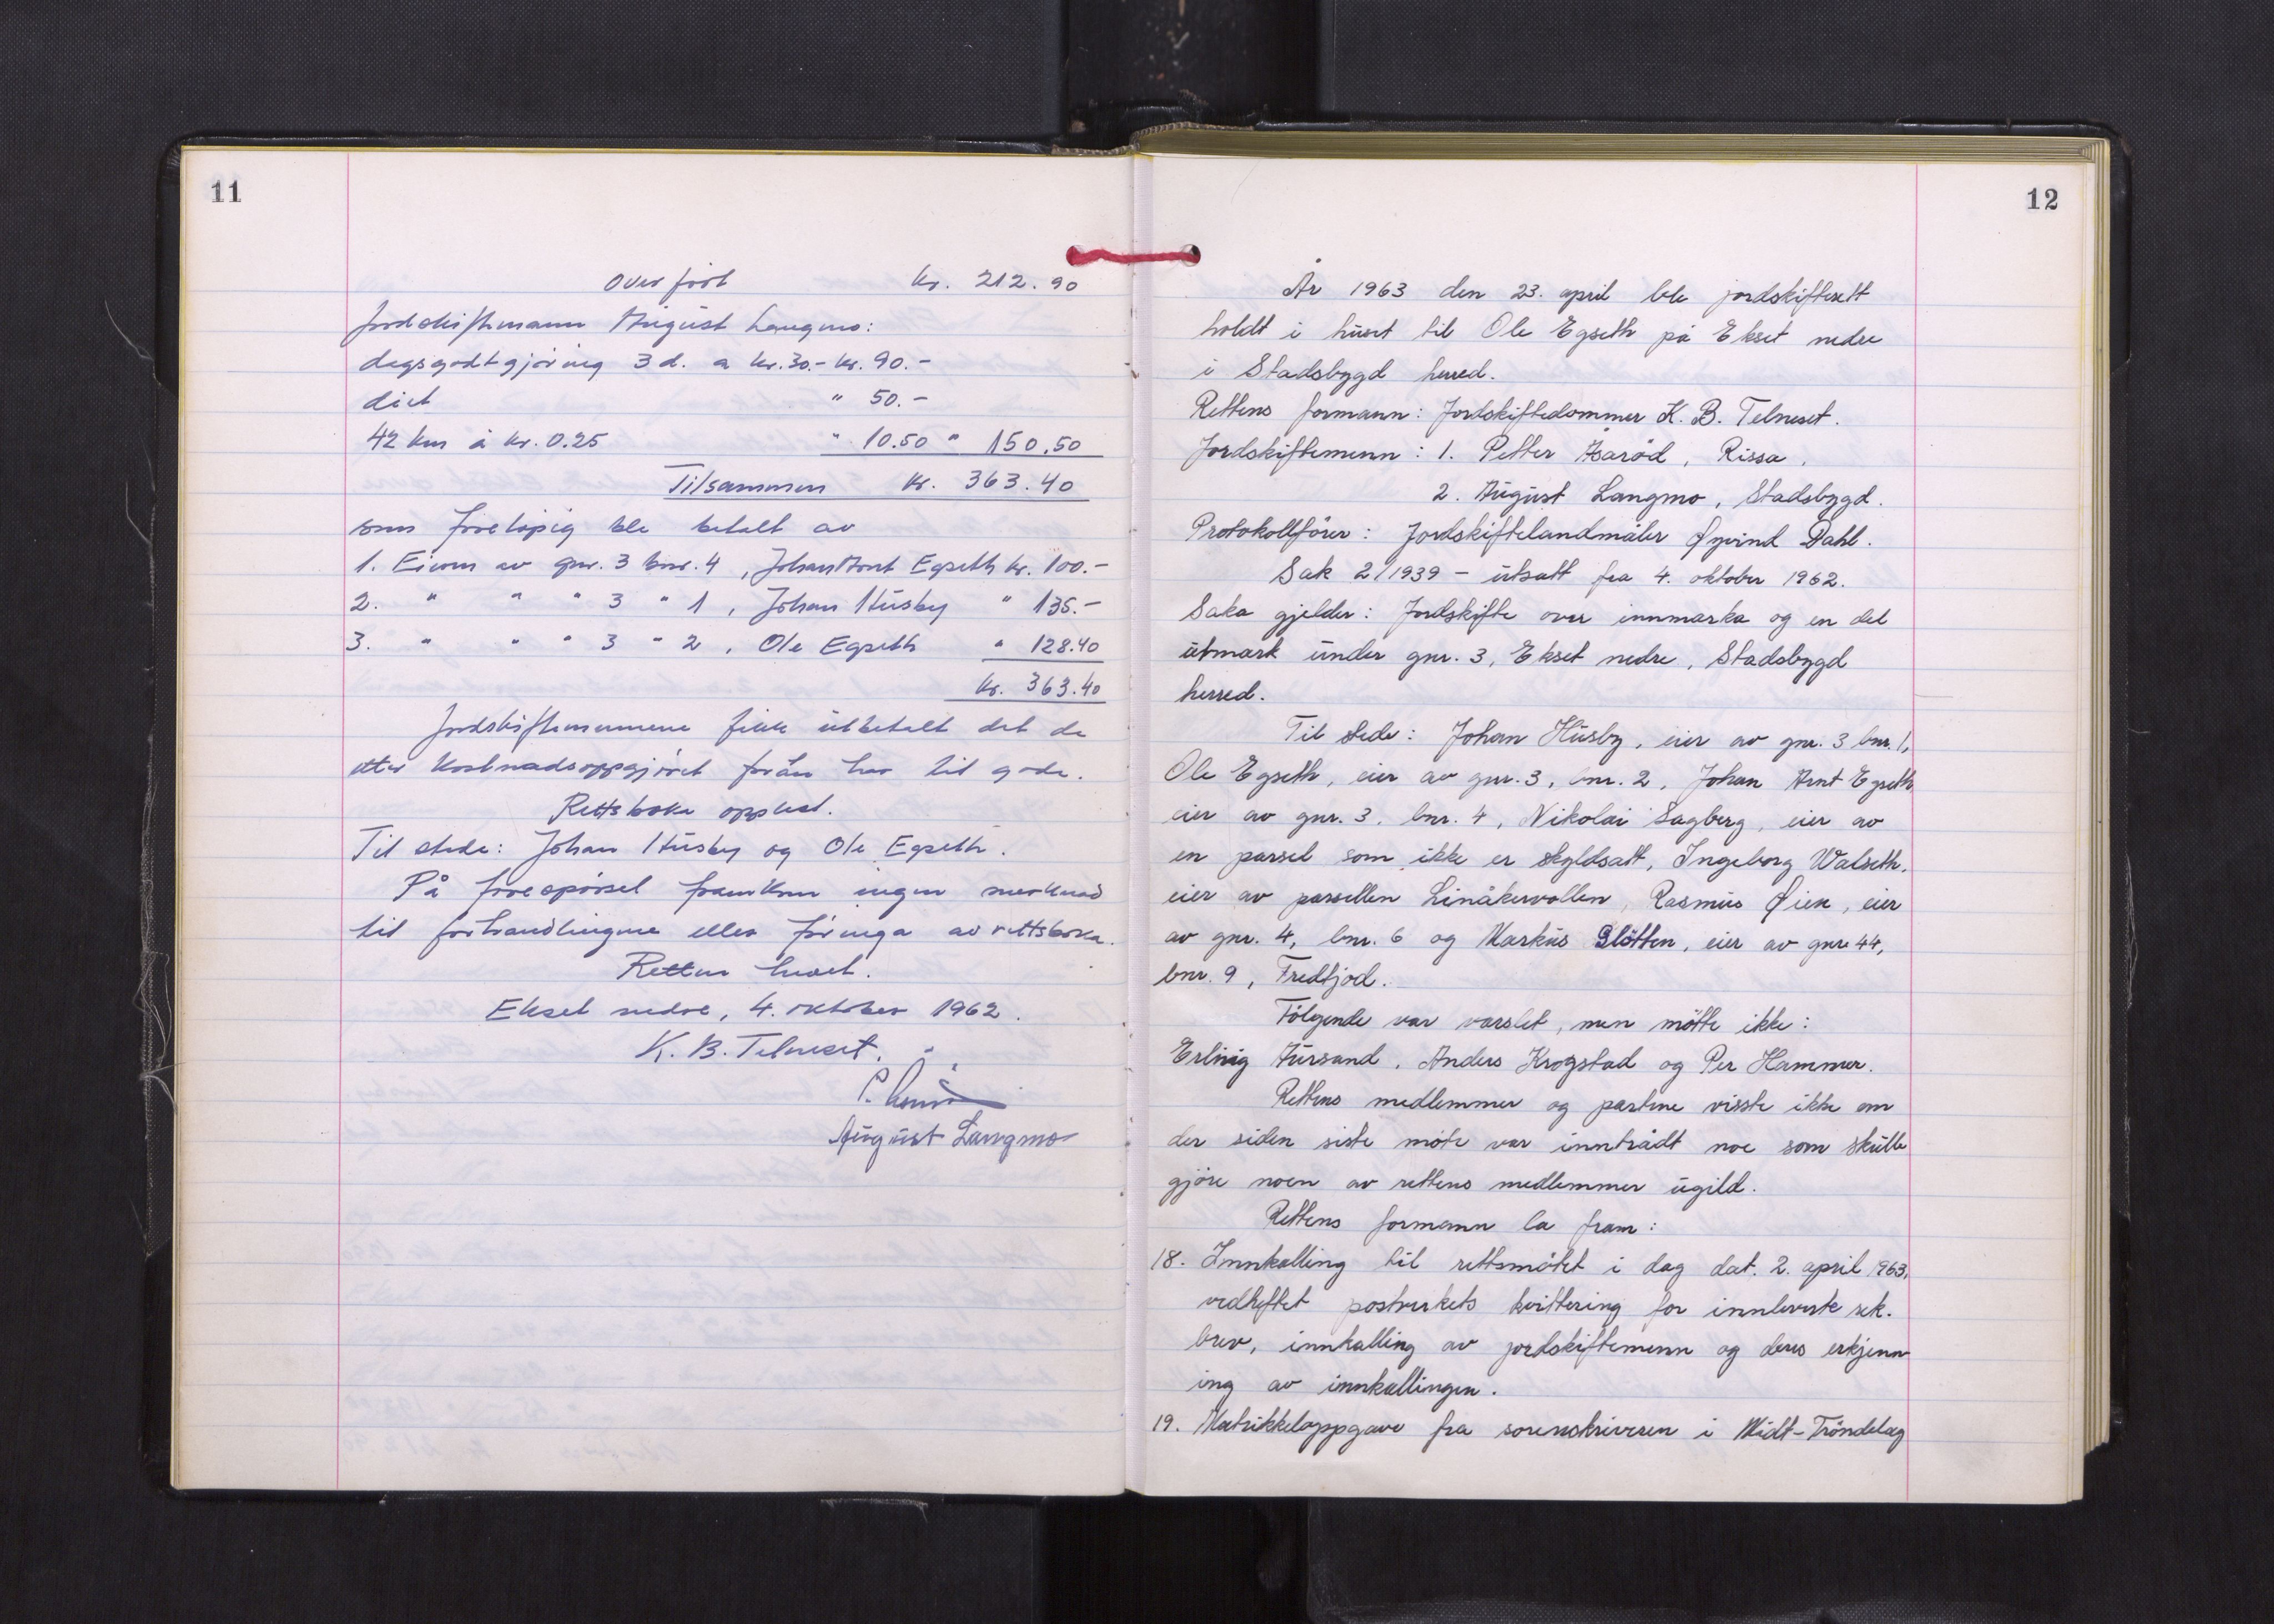 11
Overført kr. 212.90
Jordskiftemann August Langmo:
dagsgodtgjøring 3 d. a kr. 30.- kr. 90.-
diet " 50.-
42 km à kr. 0.25 " 10.50 " 150.50
Tilsammen kr. 363.40
som foreløpig ble betalt av
1. Eieren av gnr. 3 bnr. 4, Johan Arnt Egseth kr. 100.-
2. " " " 3 " 1, Johan Husby " 135.-
3. " " " 3 " 2, Ole Egseth " 128.40
kr. 363.40
Jordskiftemennene fikk utbetalt det de
etter kostnadsoppgjøret foran har til gode.
Rettsboka opplest.
Til stede: Johan Husby og Ole Egseth.
På forespørsel framkom ingen merknad
til forhandlingene eller føringa av rettsboka.
Retten hevet.
Ekset nedre, 4. oktober 1962.
K. B. Telneset.
P.
August Langmo
12
År 1963 den 23. april ble jordskifterett
holdt i huset til Ole Egseth på Ekset nedre
i Stadsbygd herred.
Rettens formann: Jordskiftedommer K. B. Telneset.
Jordskiftemenn: 1. Petter Åsarød, Rissa,
2. August Langmo, Stadsbygd.
Protokollfører: Jordskiftelandmåler Øyvind Dahl.
Sak 2/1939 - utsatt fra 4. oktober 1962.
Saka gjelder: Jordskifte over innmarka og en del
utmark under gnr. 3, Ekset nedre, Stadsbygd
herred.
Til stede: Johan Husby, eier av gnr. 3 bnr. 1,
Ole Egseth, eier av gnr. 3, bnr. 2, Johan Arnt Egseth
eier av gnr. 3, bnr. 4, Nikolai Sagberg, eier av
en parsel som ikke er skyldsatt, Ingeborg Walseth,
eier av parsellen Linåkervollen, Rasmus Øien, eier
av gnr. 4, bnr. 6 og Markus Slåtten, eier av gnr 44,
bnr. 9, Fredtjod.
Følgende var varslet, men møtte ikke:
Erling Aursand, Anders Krogstad og Per Hammer.
Rettens medlemmer og partene visste ikke om
der siden siste møte var inntrådt noe som skulle
gjøre noen av rettens medlemmer ugild.
Rettens formann la fram:
18. Innkalling til rettsmøtet i dag dat. 2. april 1963,
vedheftet postverkets kvittering for innleverte rek.
brev, innkalling av jordskiftemenn og deres erkjenn-
ing av innkallingen.
19. Matrikkeloppgave fra sorenskriveren i Midt-Trøndelag